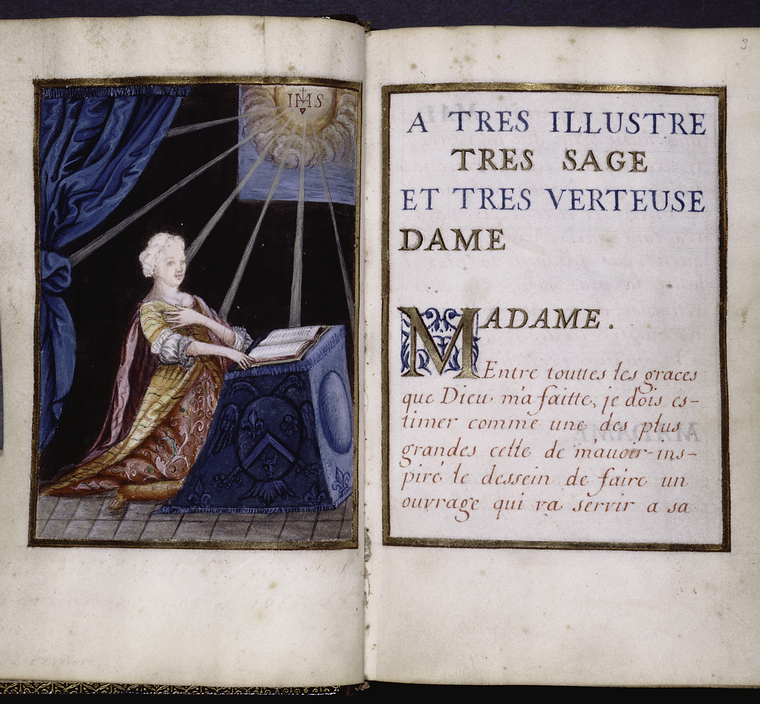 IHS
3
A TRES ILLUSTRE
TRES SAGE
ET TRES VERTEUSE
DAME
MADAME.
Entre touttes les graces
que Dieu m'a faitte, je dois es-
timer comme une des plus
grandes celle de m'avoir ins-
piré le dessein de faire un
ouvrage qui va servir a sa